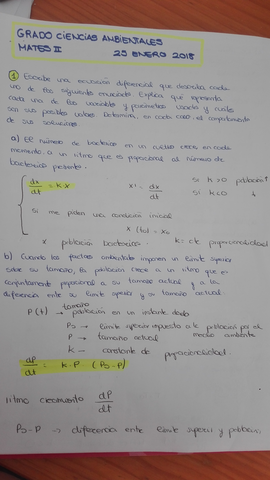 GRADO CIENCIAS AMBIENTALES
MATES II 25 ENERO 2018
1 Escribe una ecuación diferencial que describa cada
uno de los siguientes enunciados. Explica qué representa
cada una de las variables y parámetros usados y cuáles
son sus posibles valores. Determina, en cada caso, el comportamiento
de sus soluciones.
a) El número de bacterias en un cultivo crece en cada
momento a un ritmo que es proporcional al número de
bacterias presente.
dx/dt = k·x x' = dx/dt si k>0 población↑
si k<0 ↓
Si me piden una condición inicial
x(t0) = x0
x población bacterias k = cte proporcionalidad
b) Cuando los factores ambientales imponen un límite superior
sobre su tamaño, la población crece a un ritmo que es
conjuntamente proporcional a su tamaño actual y a la
diferencia entre su límite superior y su tamaño actual.
tamaño
P(t) → población en un instante dado
P0 → límite superior impuesto a la población por el
medio ambiente
P → tamaño actual
k → constante de proporcionalidad
dP/dt = k·P (P0-P)
ritmo crecimiento dP/dt
P0-P → diferencia entre límite superior y población